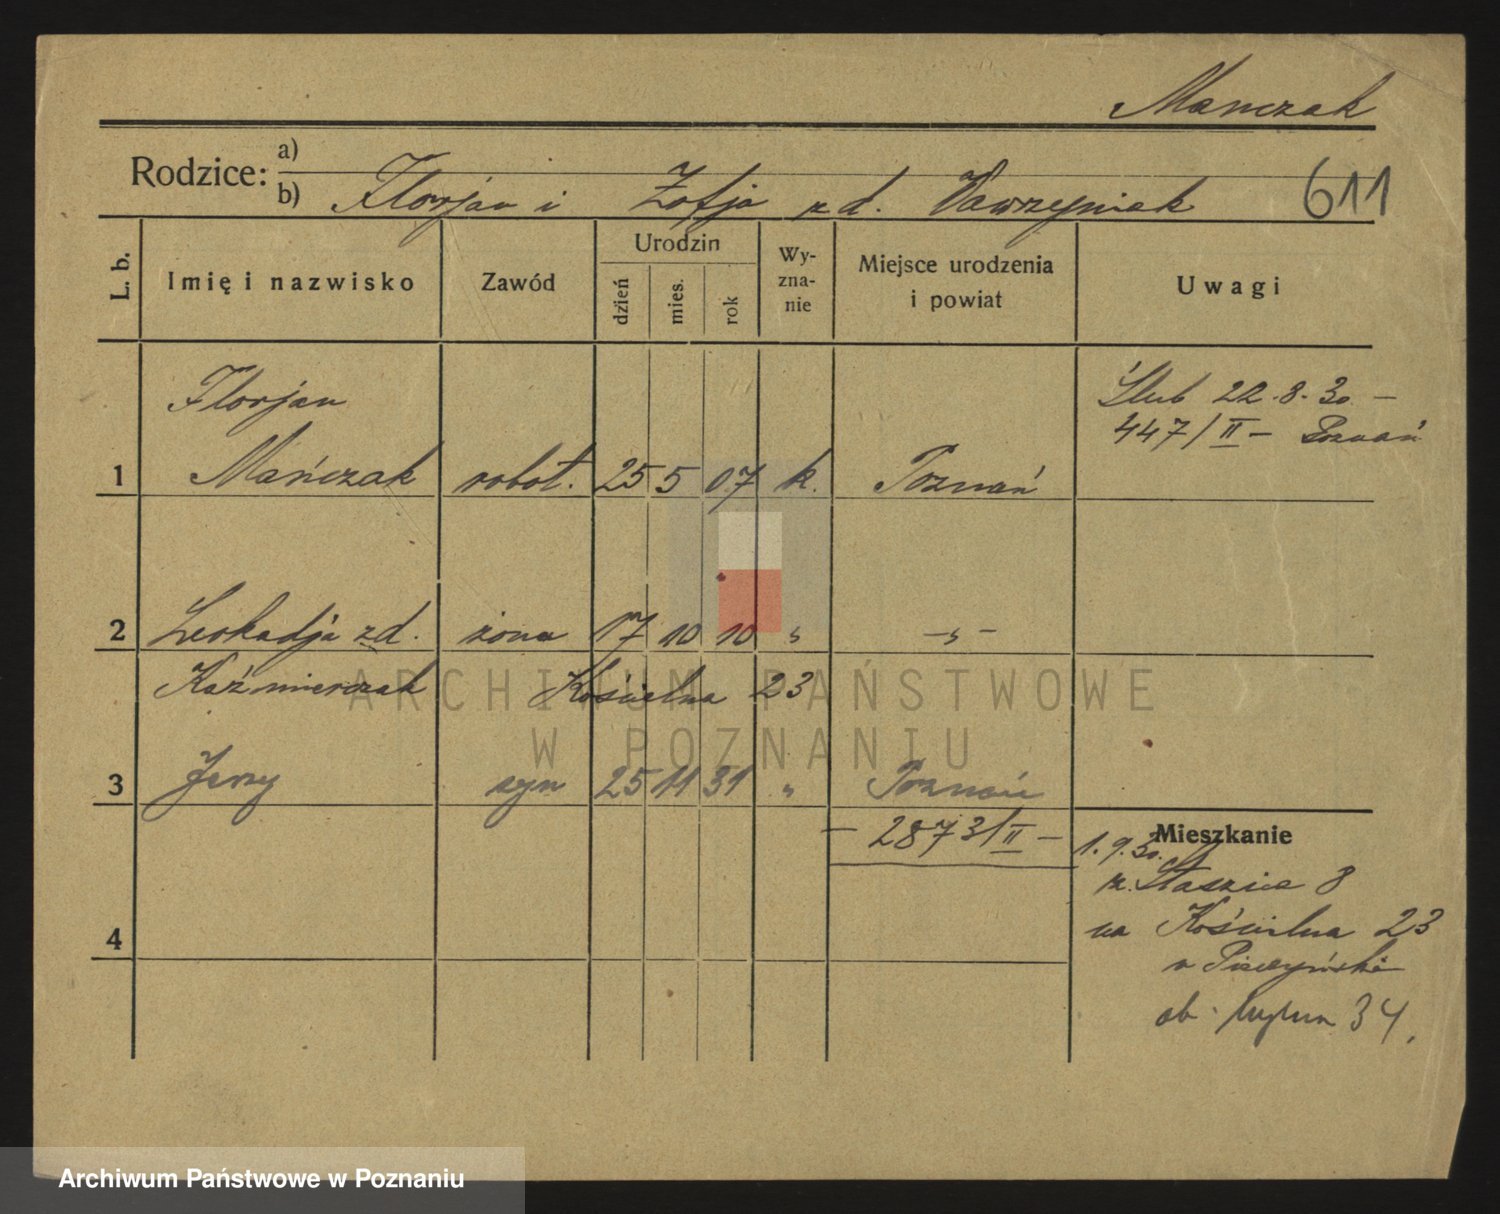 Mańczak
Rodzice: a)
b) Florjan i Zofja z d. Wawrzyniak
611
L. b.
Imię i nazwisko
Zawód
Urodzin
dzień
mies.
rok
Wy-
zna-
nie
Miejsce urodzenia
i powiat
Uwagi
Florjan
1 Mańczak robot. 25 5 07 k. Poznań
Ślub 22.8.30 –
447/II – Poznań
2 Leokadja z d. żona 17 10 10 " – " –
Kaźmierczak Kościelna 23
3 Jerzy syn 25 11 31 " Poznań
– 2873/II –
4
Mieszkanie
1.9.30.
z. Staszica 8
na Kościelna 23
ob. 34.
ARCHIWUM PAŃSTWOWE
W POZNANIU
Archiwum Państwowe w Poznaniu